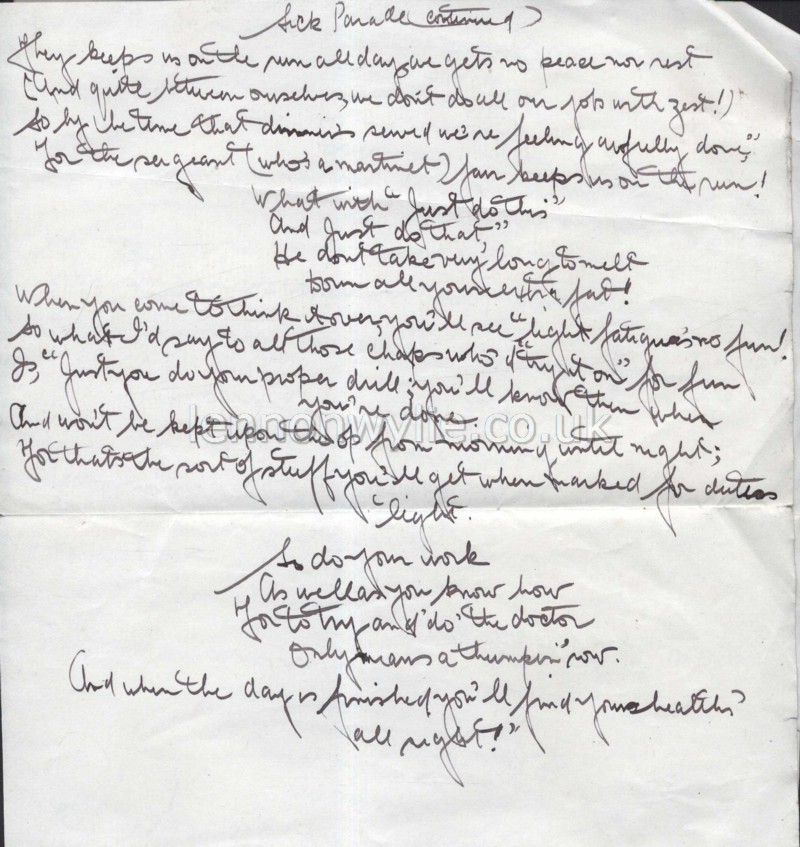 Sick Parade (continued)
They keeps us on the run all day, we gets no peace nor rest
(And quite between ourselves, we don't do all our jobs with zest!)
So by the time that dinner's served we're feeling awfully done,"
For the sergeant (who's a martinet) fair keeps us on the run!
What with "Just do this"
And Just do that"
He don't take very long to melt
Down all your extra fat!
When you come to think it over, you'll see "light fatigue's no fun!
So what I'd say to all those chaps who'd "try it on" for fun
Is, "Just you do your proper drill; you'll know then when
you're done.
And won't be kept upon the op from morning until night;
For that's the sort of stuff you'll get when marked for duties
"light.
So do your work
As well as you know how
For to try and 'do' the doctor
Only means a thumpin' row.
And when the day is finished you'll find your health's
all right!"
lennonwylie.co.uk